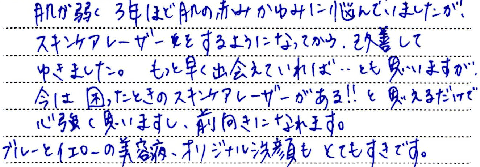 肌が弱く 3年ほど肌の赤みかゆみに悩んでいましたが、
スキンケアレーザーをするようになってから、改善して
ゆきました。もっと早く出会えていれば‥とも思いますが、
今は困ったときのスキンケアレーザーがある!!と思えるだけで
心強く思いますし、前向きになれます。
ブルーとイエローの美容液、オリジナル洗顔も とてもすきです。